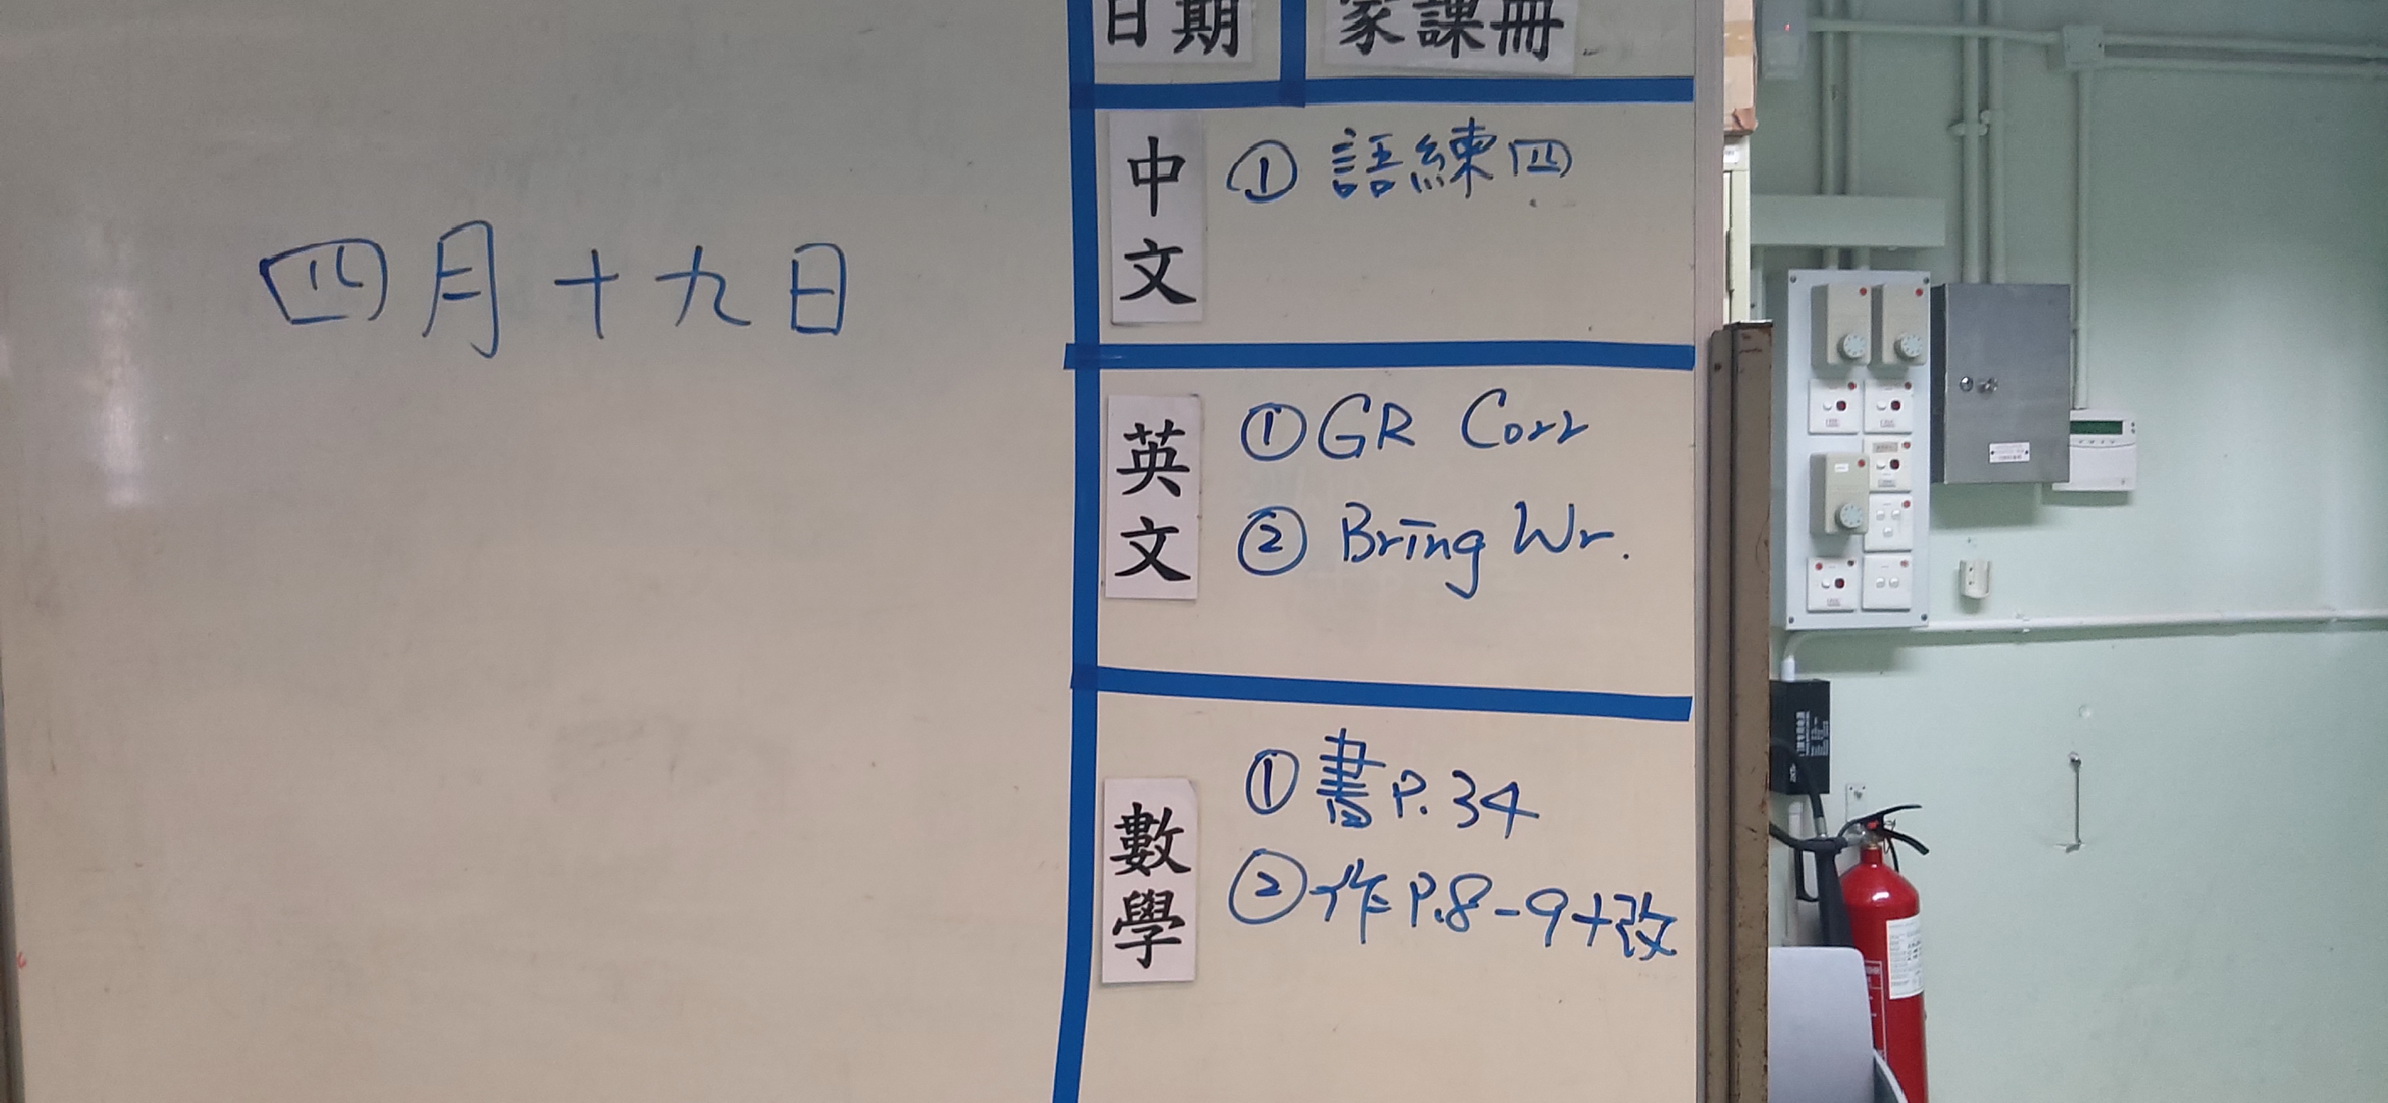 日期 家課冊
四月十九日
中文
① 語練四
英文
① GR Corr
② Bring Wr.
數學
① 書P.34
② 作P.8-9+改